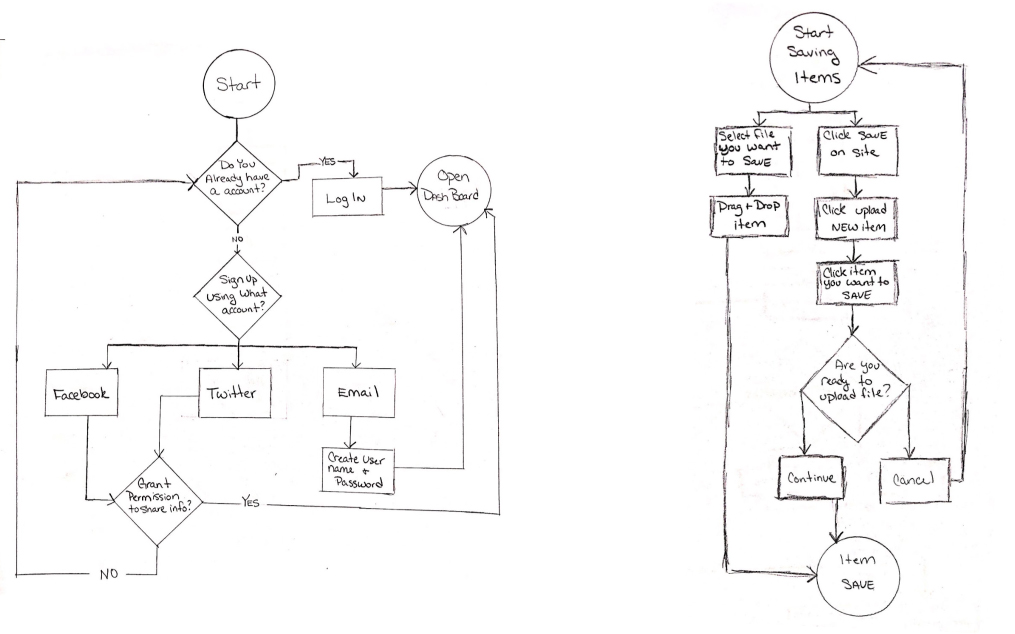 Start
Do You
Already have
a account?
YES
Log IN
Open
DASH BOARD
NO
Sign up
using what
account?
Facebook
Twitter
Email
Create User
name +
Password
Grant
Permission
to share info?
YES
NO
Start
Saving
Items
Select file
you want
to SAVE
Drag + Drop
item
Click SAVE
on site
Click upload
NEW item
Click item
you want to
SAVE
Are you
ready to
upload file?
Continue
Cancel
Item
SAVE